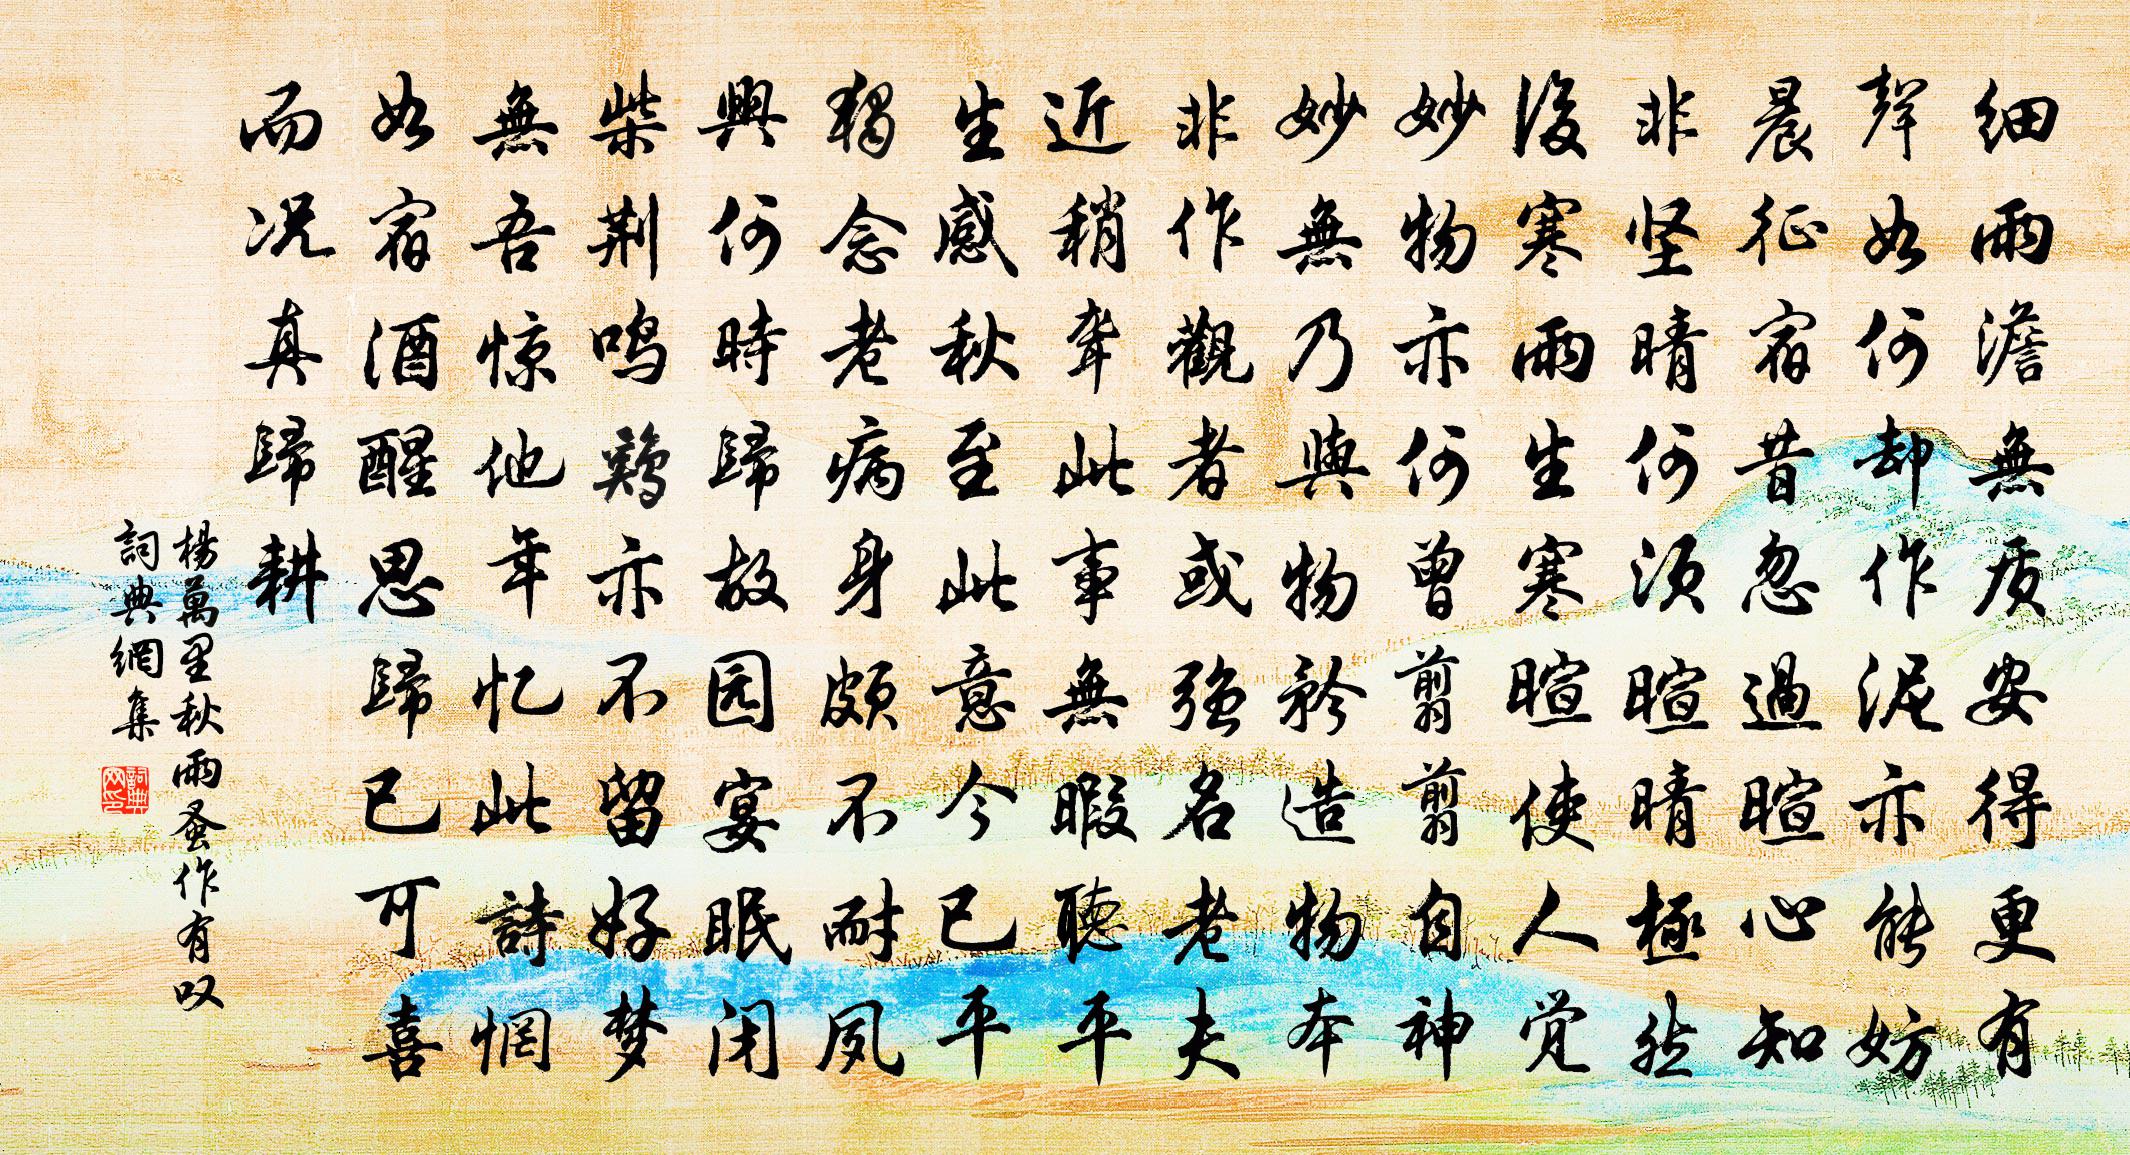 细雨澹無质安得更有
聲如何却作泥亦能妨
晨征宿昔忽過暄心知
非坚晴何须暄晴極然
後寒雨生寒暄使人觉
妙物亦何曾剪剪自神
妙無乃與物矜造物本
非作觀者或强名老夫
近稍聋此事無暇聽平
生感秋至此意今已平
獨念老病身颇不耐夙
興何時歸故园宴眠闭
柴荆鸣鷄亦不留好梦
無吾惊他年忆此詩惘
如宿酒醒思歸已可喜
而况真歸耕
楊萬里秋雨蚤作有叹
詞典網集
詞典网印